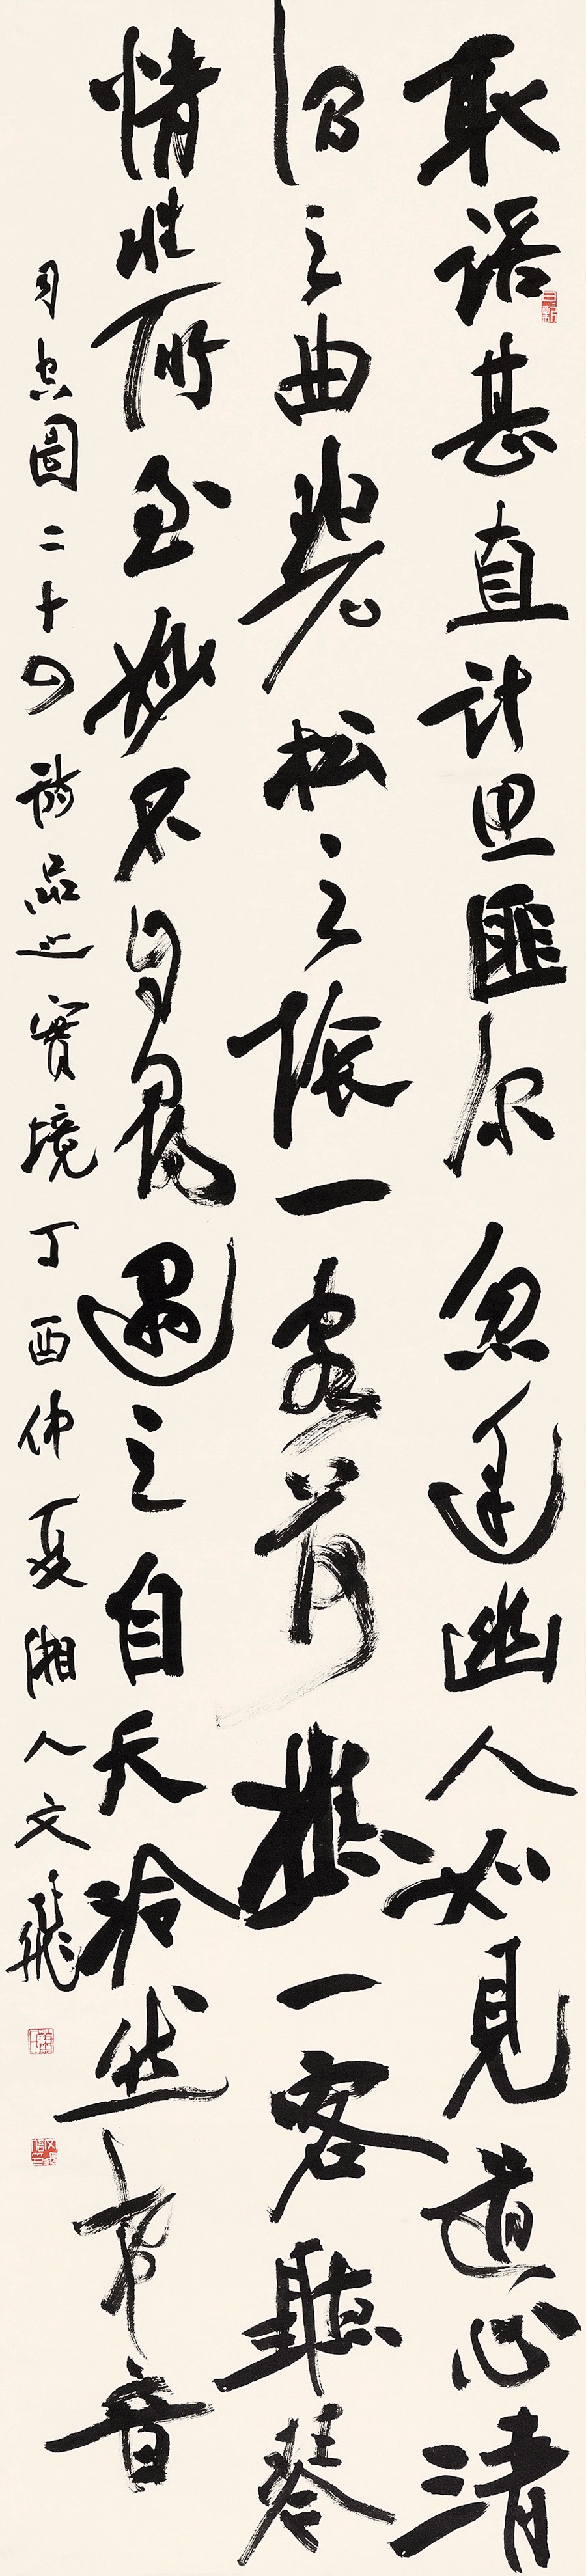 取語甚直計思匪深忽逢幽人如見道心清
澗之曲碧松之陰一客荷樵一客聽琴
情性所至妙不自尋遇之自天泠然希音
司空圖二十四詩品之實境丁酉仲夏湘人文飛
日新